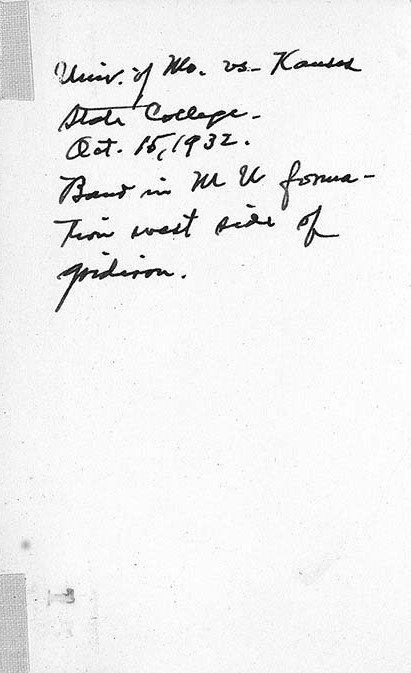 Univ. of Mo. vs. Kansas
State College.
Oct. 15, 1932.
Band in M U forma-
tion west side of
gridiron.